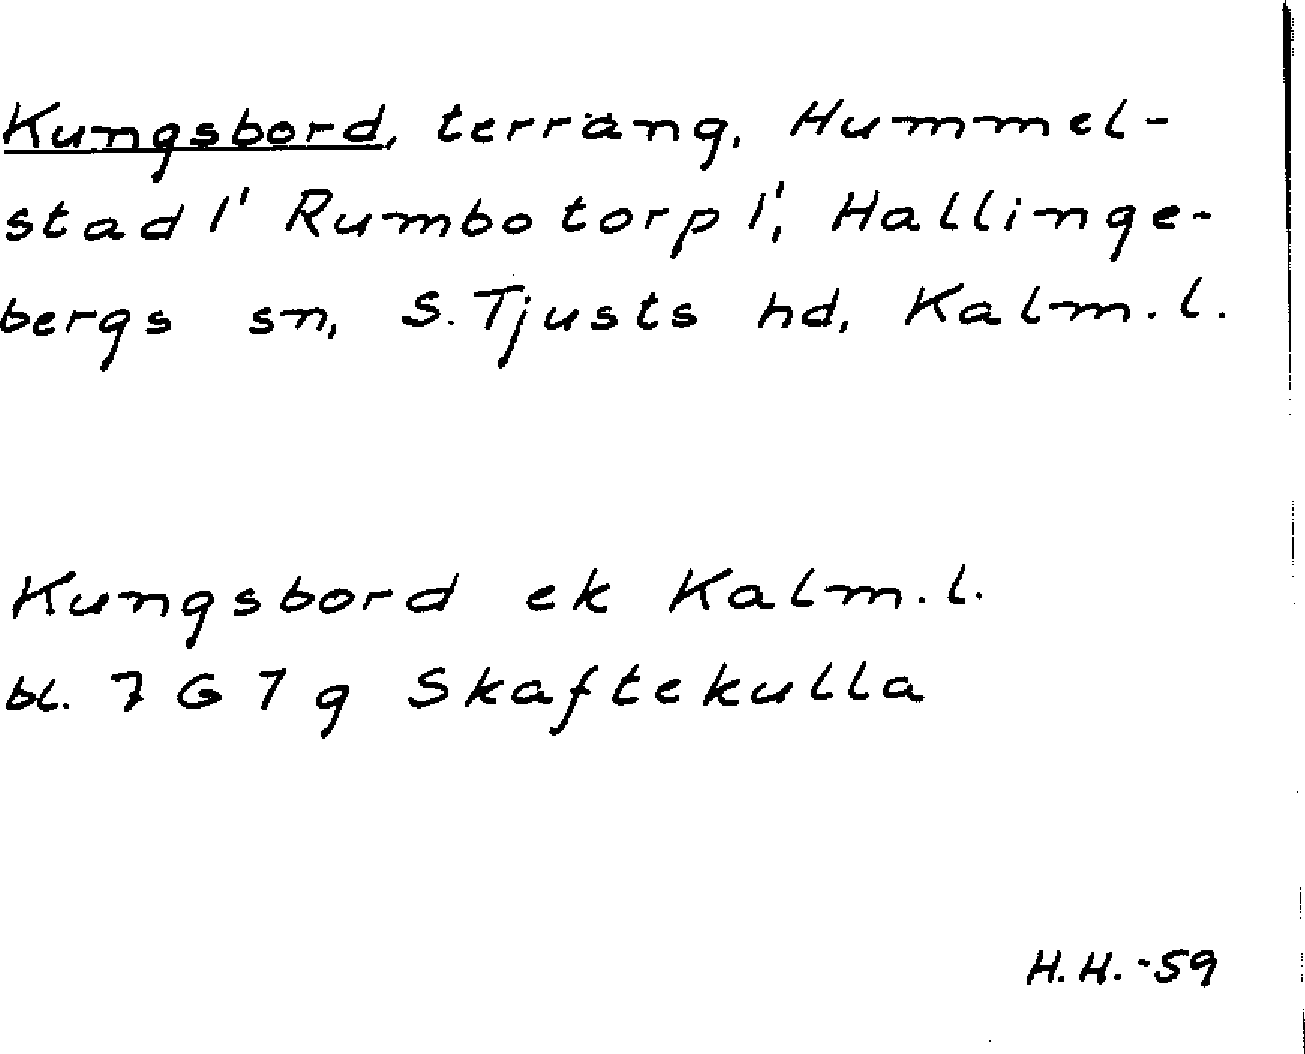 Kungsbord, terräng, Hummel-
stad 1' Rumbotorp 1', Hallinge-
bergs sn, S. Tjusts hd, Kalm. l.
Kungsbord ek Kalm. l.
bl. 7 G 7 g Skaftekulla
H.H.-59